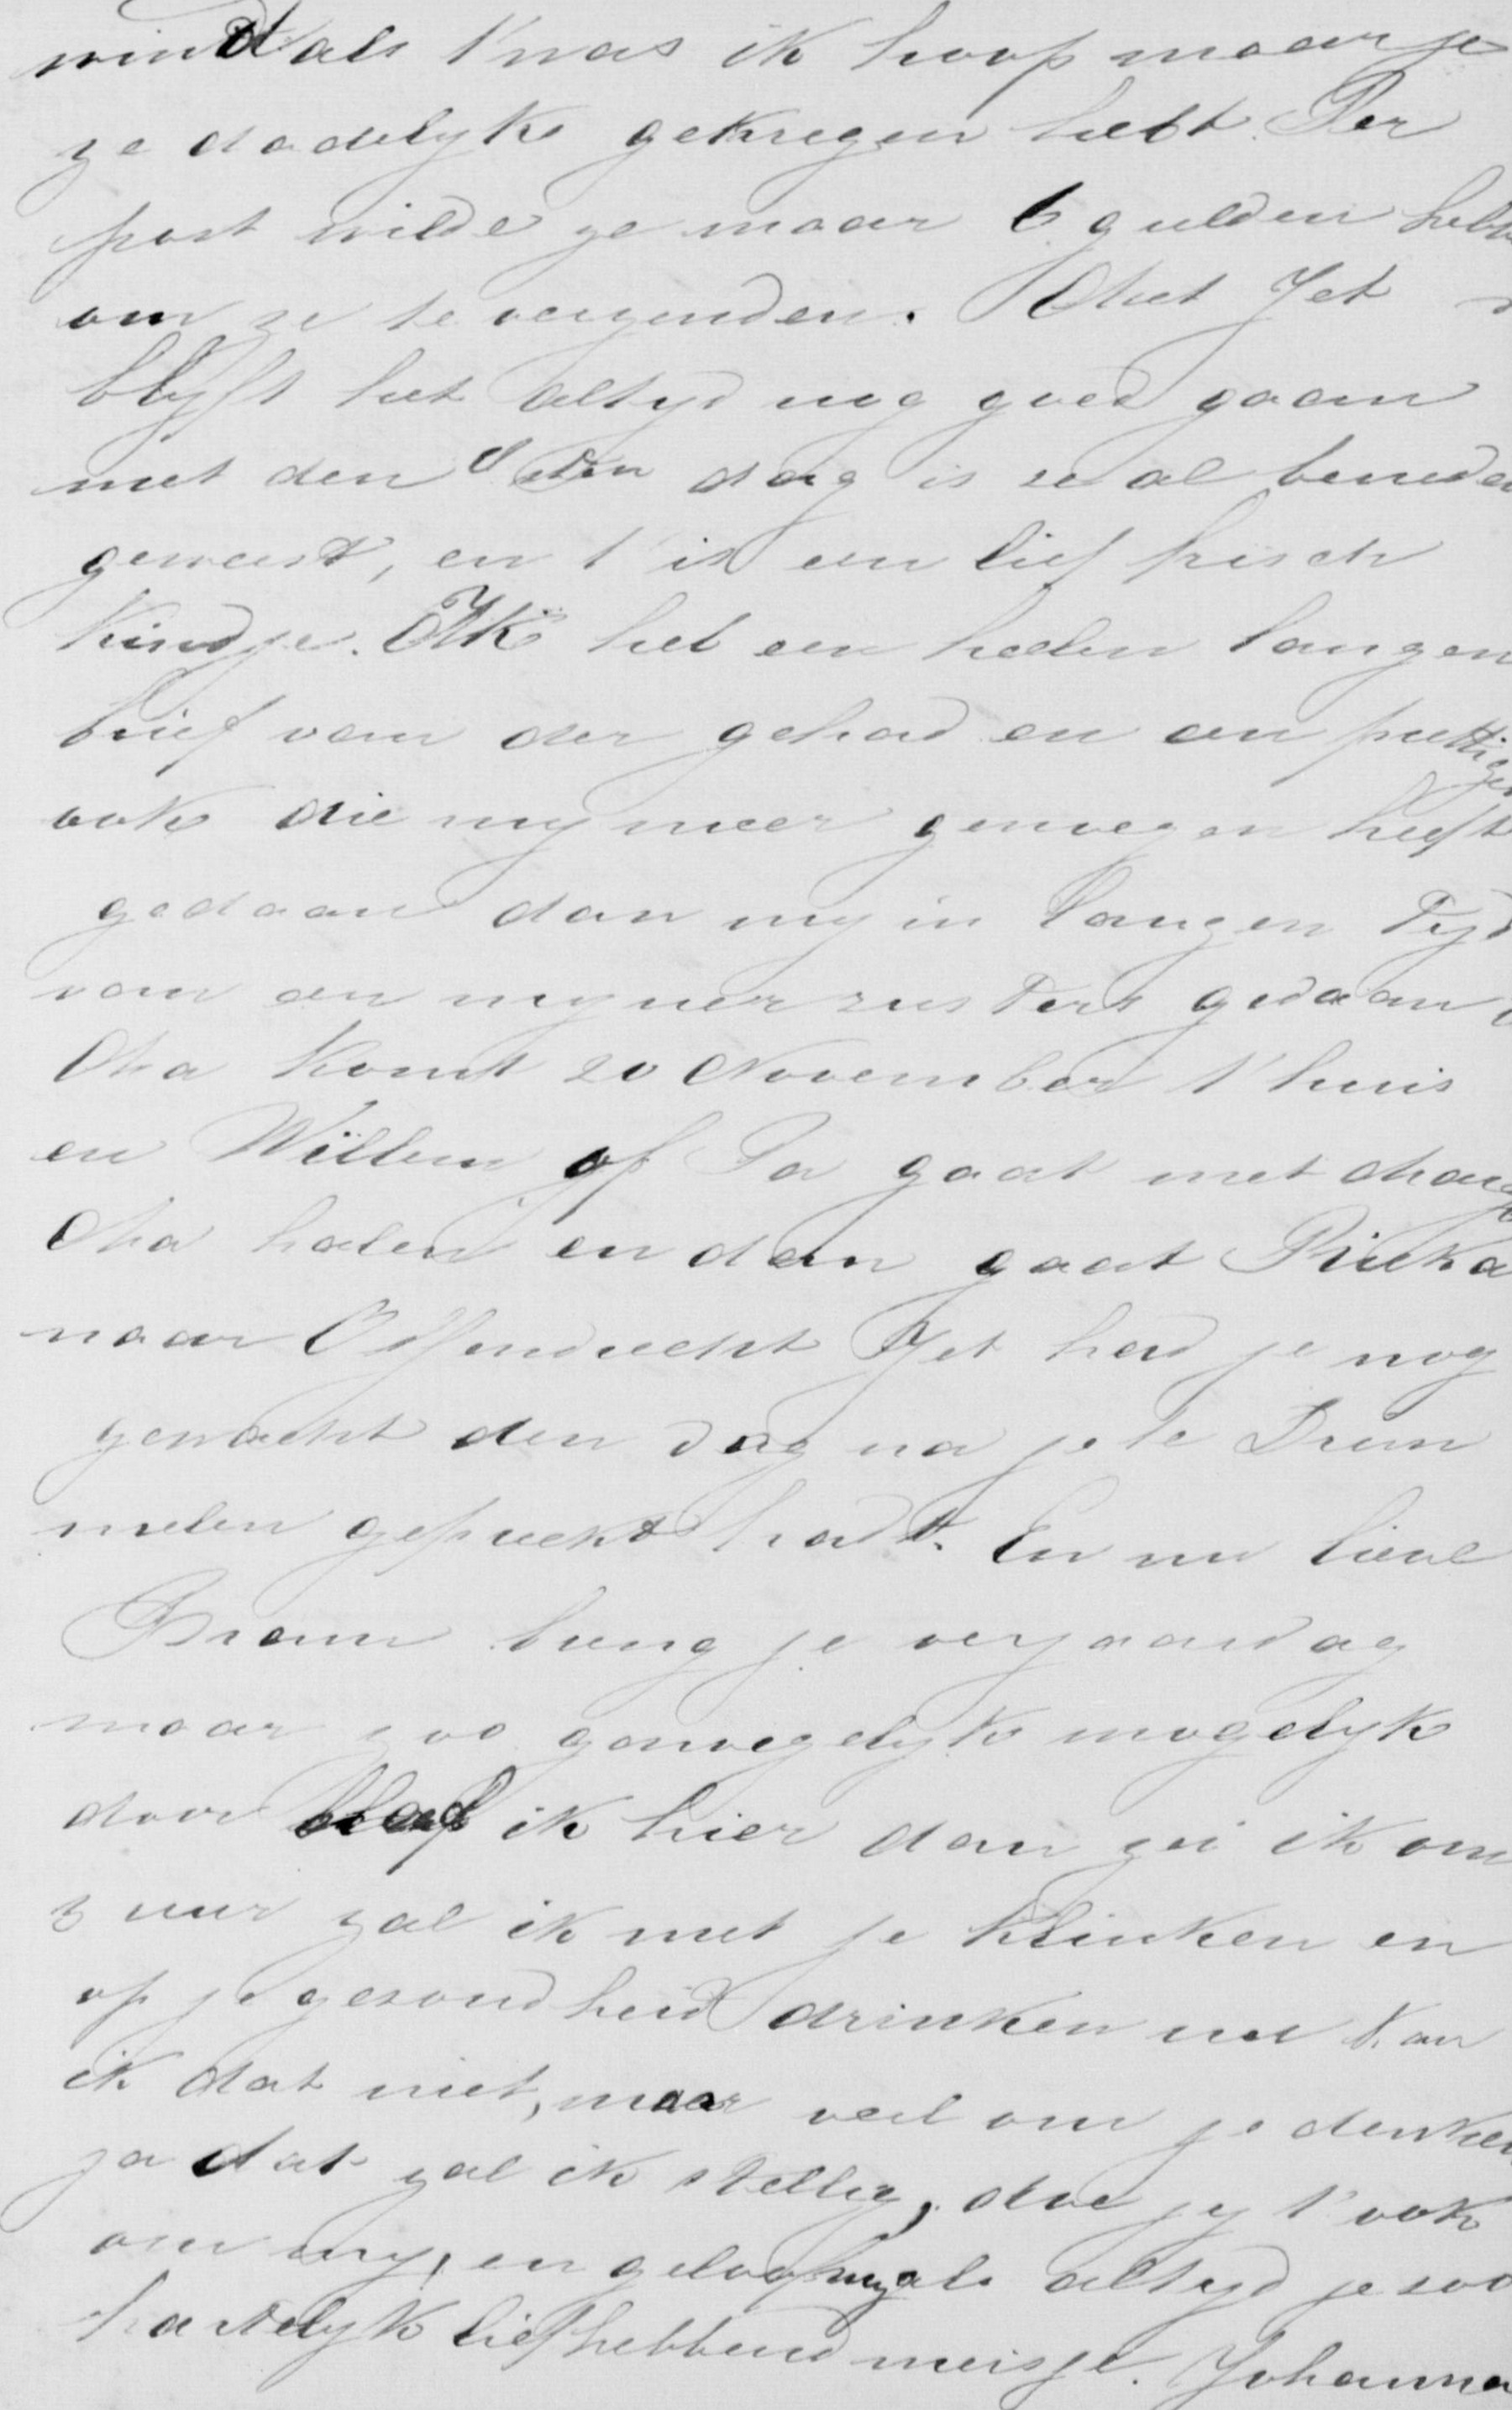 wind als t was ik hoop maar je
ze dadelyk gekregen hebt. Per
post wilde ze maar 6 gulden hebb
om ze te verzenden. Met Jet
blyft het altyd nog goed gaan
met den den dag is ze al beneden
geweest, en t is een lief frisch
kindje. Ik heb een heelen langen
brief van der gehad en een prettigen
ook die my meer genoegen heeft
gedaan dan my in langen tyd
van een myner zusters gedaan
Ma komt 20 November t'huis
en Willem of Pa gaat met
Ma halen en dan gaat Rieka
naar Ossendrecht Jet had je nog
gewacht den dag na je te Drim
melen gepreekt hadt. En nu lieve
Bram breng je verjaardag
maar zoo genoegelyk mogelyk
door bleef ik hier dan zei ik om
3 uur zal ik met je klinken en
op je gezondheid drinken nu kan
ik dat niet, maar veel om je denken
ja dat zal ik stellig, doe jy t ook
om my, en geloof my als altyd je zoo
hartelyk liefhebbend meisje. Johanna